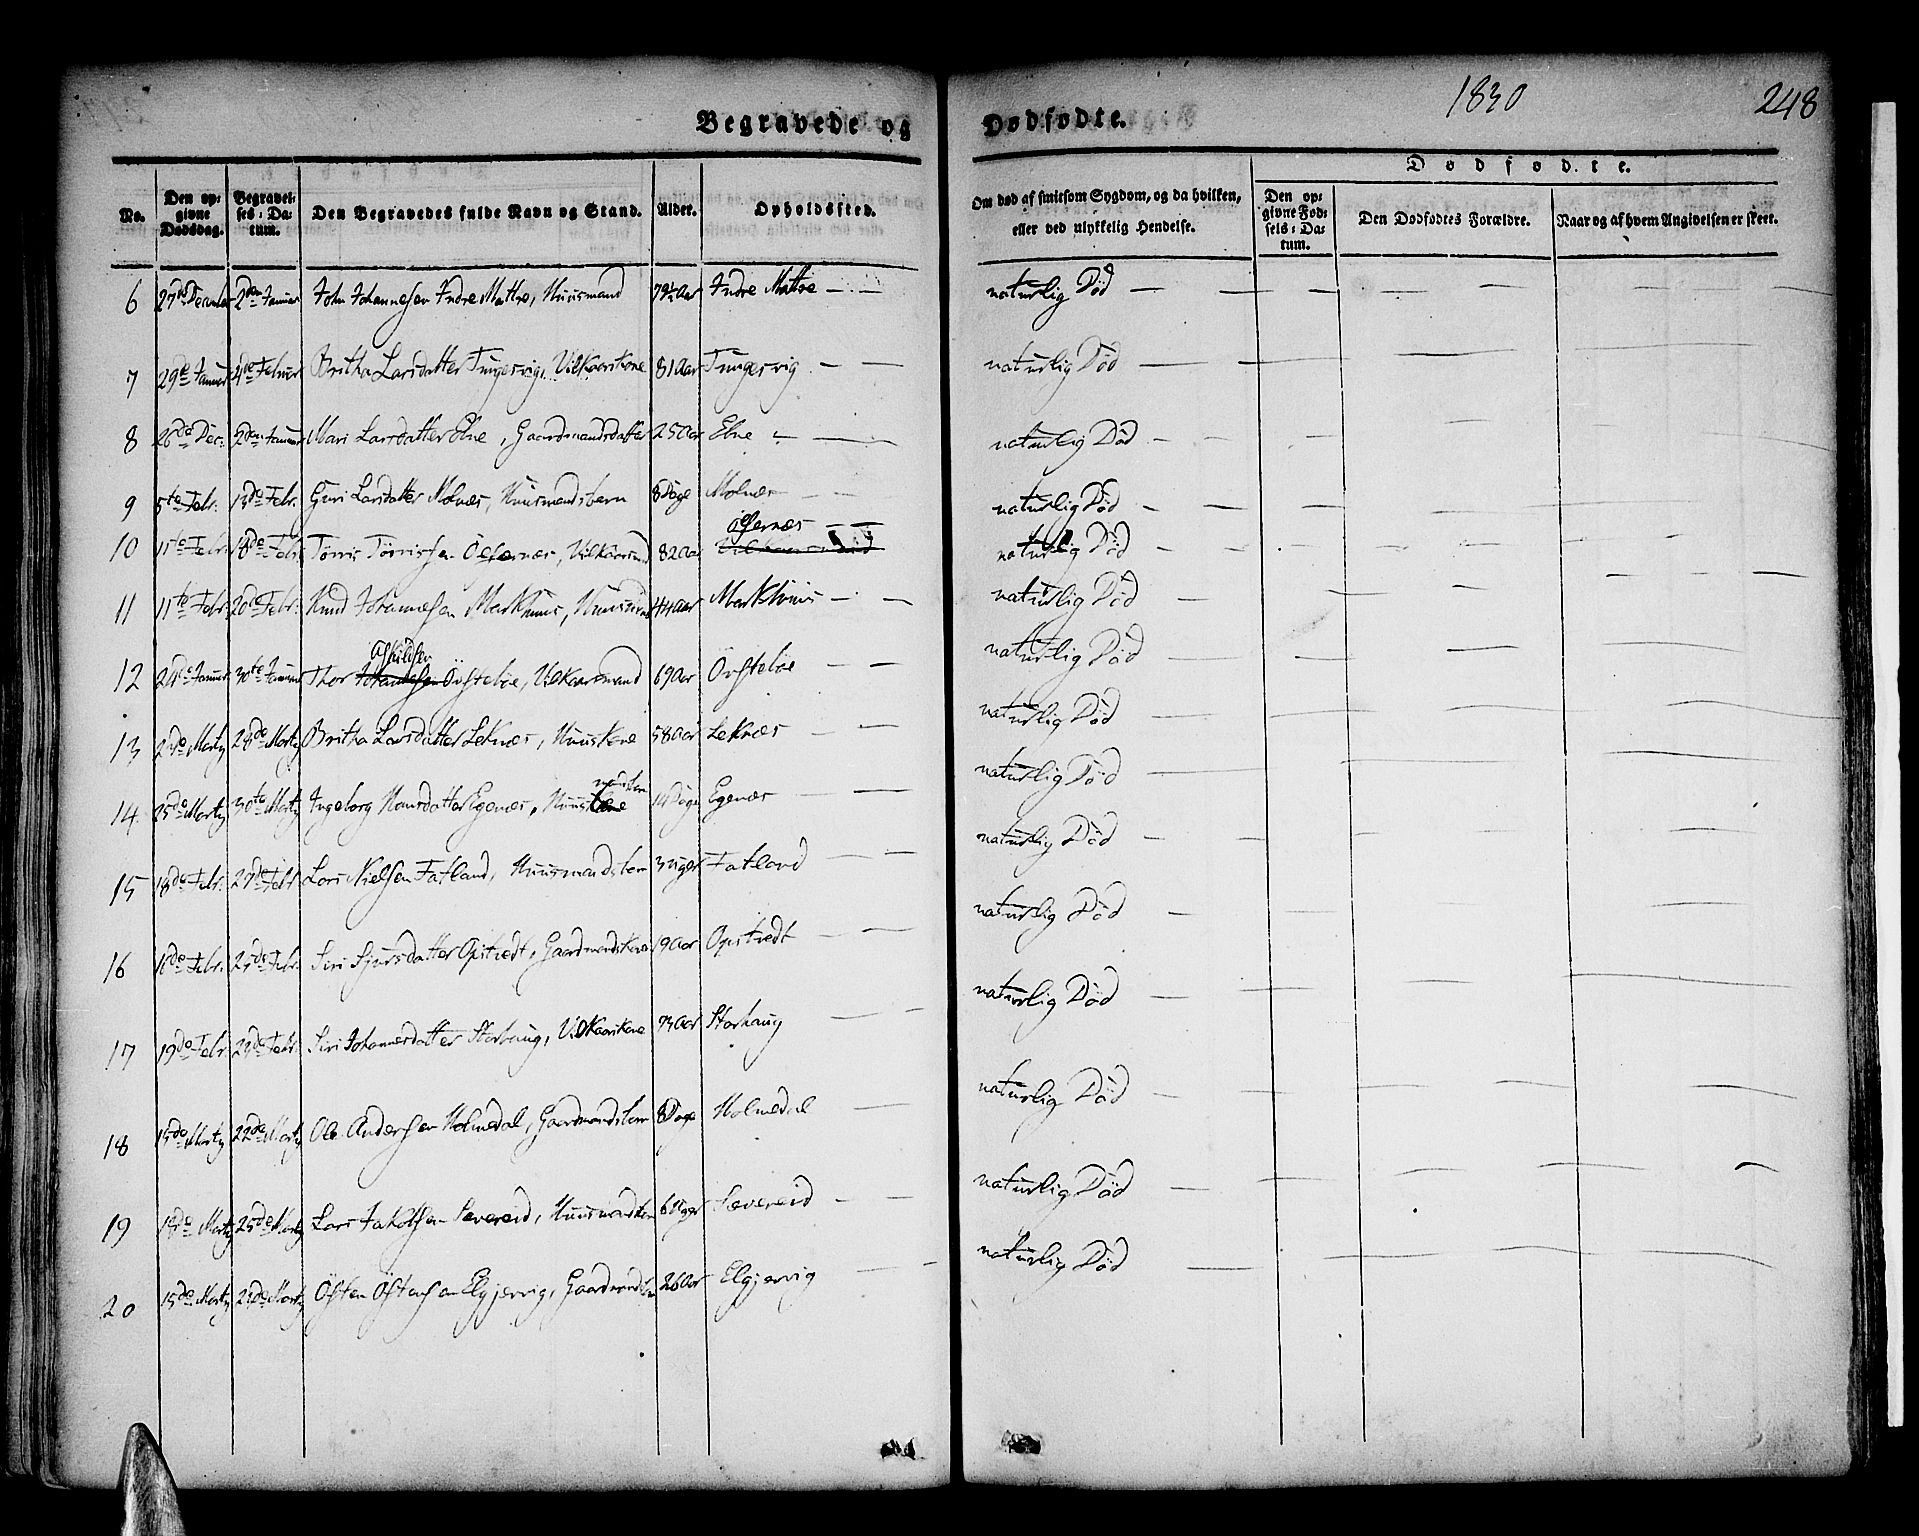 1830
248
Begravede og Dødfødte.
No. | Den opgivne Dødsdag. | Begravelses-Datum. | Den Begravedes fulde Navn og Stand. | Alder. | Opholdssted. | Om død af smitsom Sygdom, og da hvilken, eller ved ulykkelig Hendelse. | Dødfødte. | Den opgivne Fødsels-Datum. | Den Dødfødtes Forældre. | Naar og af hvem Angivelsen er skeet.
6 | 27de Decmber | 2den Januar | John Johannesen Indre Mattre, Huusmand | 79½ Aar | Indre Mattre — | naturlig Död —
7 | 29de Januar | 4de Februr | Britha Larsdatter Tungesvig, Vilkaarskone | 81 Aar | Tungesvig — | naturlig Död —
8 | 26de Dec: | 2den Januar | Mari Larsdatter Ebne, Gaardmandsdatter | 25 Aar | Ebne — | naturlig Död —
9 | 5te Febr: | 13de Febr. | Guri Larsdatter Molnæs, Huusmandsbarn | 8 Dage | Molnæs — | naturlig Död —
10 | 11te Febr: | 18de Febr. | Törris Törrissen Östernæs, Vilkaarsmd | 82 Aar | Östernæs — | naturlig Död —
11 | 11te Febr: | 20de Febr: | Knud Johannesen Markhuus, Huusmd | 44 Aar | Markhuus — | naturlig Död —
12 | Januar | 30te Januar | Thor Askildsen Övsteböe, Vilkaarsmand | 69 Aar | Övsteböe — | naturlig Död —
13 | Martz | 28de Martz | Britha Larsdatter Leknæs, Huuskone | 58 Aar | Leknæs — | naturlig Död —
14. | 25de Martz | 30te Martz | Ingeborg Hansdatter Egenæs, Huusmdsbarn | 14 Dage | Egenæs — | naturlig Död —
15 | 18de Febr: | Febr | Lars Nielsen Fatland, Huusmandsbarn | 3 Uger | Fatland — | naturlig Död —
16 | 16de Febr. | Febr: | Siri Sjursdatter Opstvedt, Gaardmandskone | Aar | Opstvedt — | naturlig Död —
17 | 19de Febr | Febr: | Siri Johannesdatter Storhaug, Vilkaarskone | 73 Aar | Storhaug — | naturlig Död —
18 | 15de Martz | 22de Martz | Ole Andersen Holmedal, Gaardmandsbarn | 8 Dage | Holmedal — | naturlig Död —
19 | 18de Martz | 25de Martz | Lars Jakobsen Sævereid, Huusmandsbarn | 6 Uger | Sævereid — | naturlig Död —
20 | 15de Martz | Martz | Östen Östensen Elgjervig, Gaardmandsbarn | 26 Aar | Elgjervig — | naturlig Död —